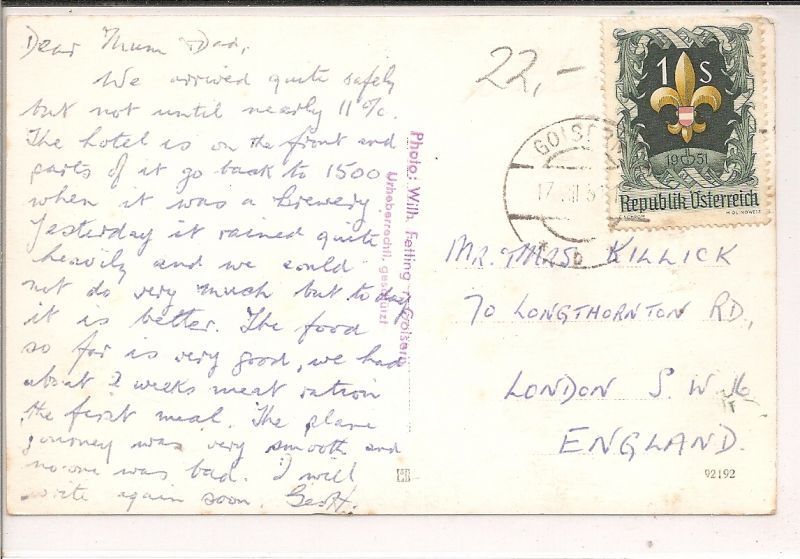 Dear Mum & Dad,
We arrived quite safely
but not until nearly 11 pc.
The hotel is on the front and
parts of it go back to 1500
when it was a Brewery.
Yesterday it rained quite
heavily and we could
not do very much but to day
it is better. The food
so far is very good, we had
about 2 weeks meat ration
the first meal. The plane
journey was very smooth and
no-one was bad. I will
write again soon. Geoff.
Photo: Wilh. Fettinger, Goisern
Urheberrechtl. geschützt
22,-
1 S
1951
Republik Österreich
GOISERN
17
MR. & MRS KILLICK
70 LONGTHORNTON RD,
LONDON S.W.16
ENGLAND.
92192